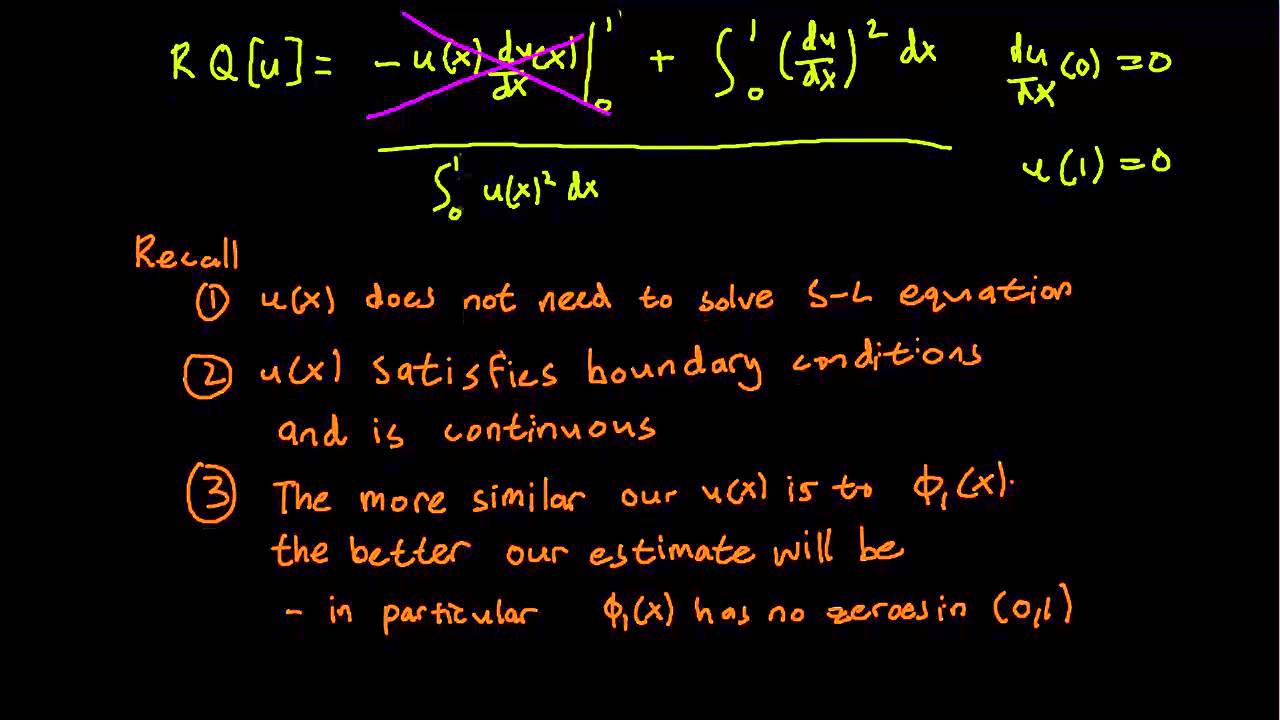 RQ[u] = -u(x) du/dx (x) |₀¹ + ∫₀¹ (du/dx)² dx du/dx (0) = 0
∫₀¹ u(x)² dx u(1) = 0
Recall
① u(x) does not need to solve S-L equation
② u(x) satisfies boundary conditions
and is continuous
③ The more similar our u(x) is to ϕ₁(x).
the better our estimate will be
- in particular ϕ₁(x) has no zeroes in (0,1)